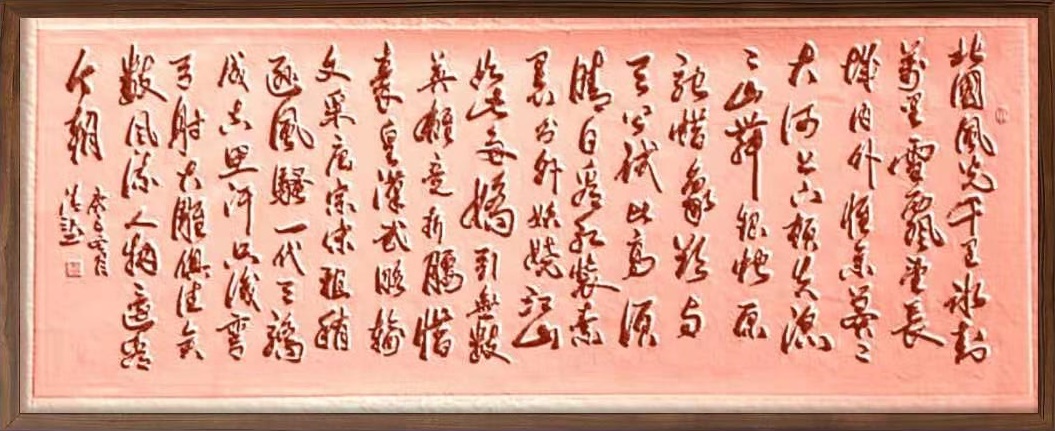 北國風光千里冰封
萬里雪飄望長
城内外惟余莽々
大河上下頓失滔
々山舞銀蛇原
馳蠟象欲与
天公試比高須
晴日看紅裝素
裹分外妖嬈江山
如此多嬌引無數
英雄竞折腰惜
秦皇漢武略輸
文采唐宗宋祖稍
遜風騷一代天驕
成吉思汗只識彎
弓射大雕俱往矣
數風流人物還看
今朝